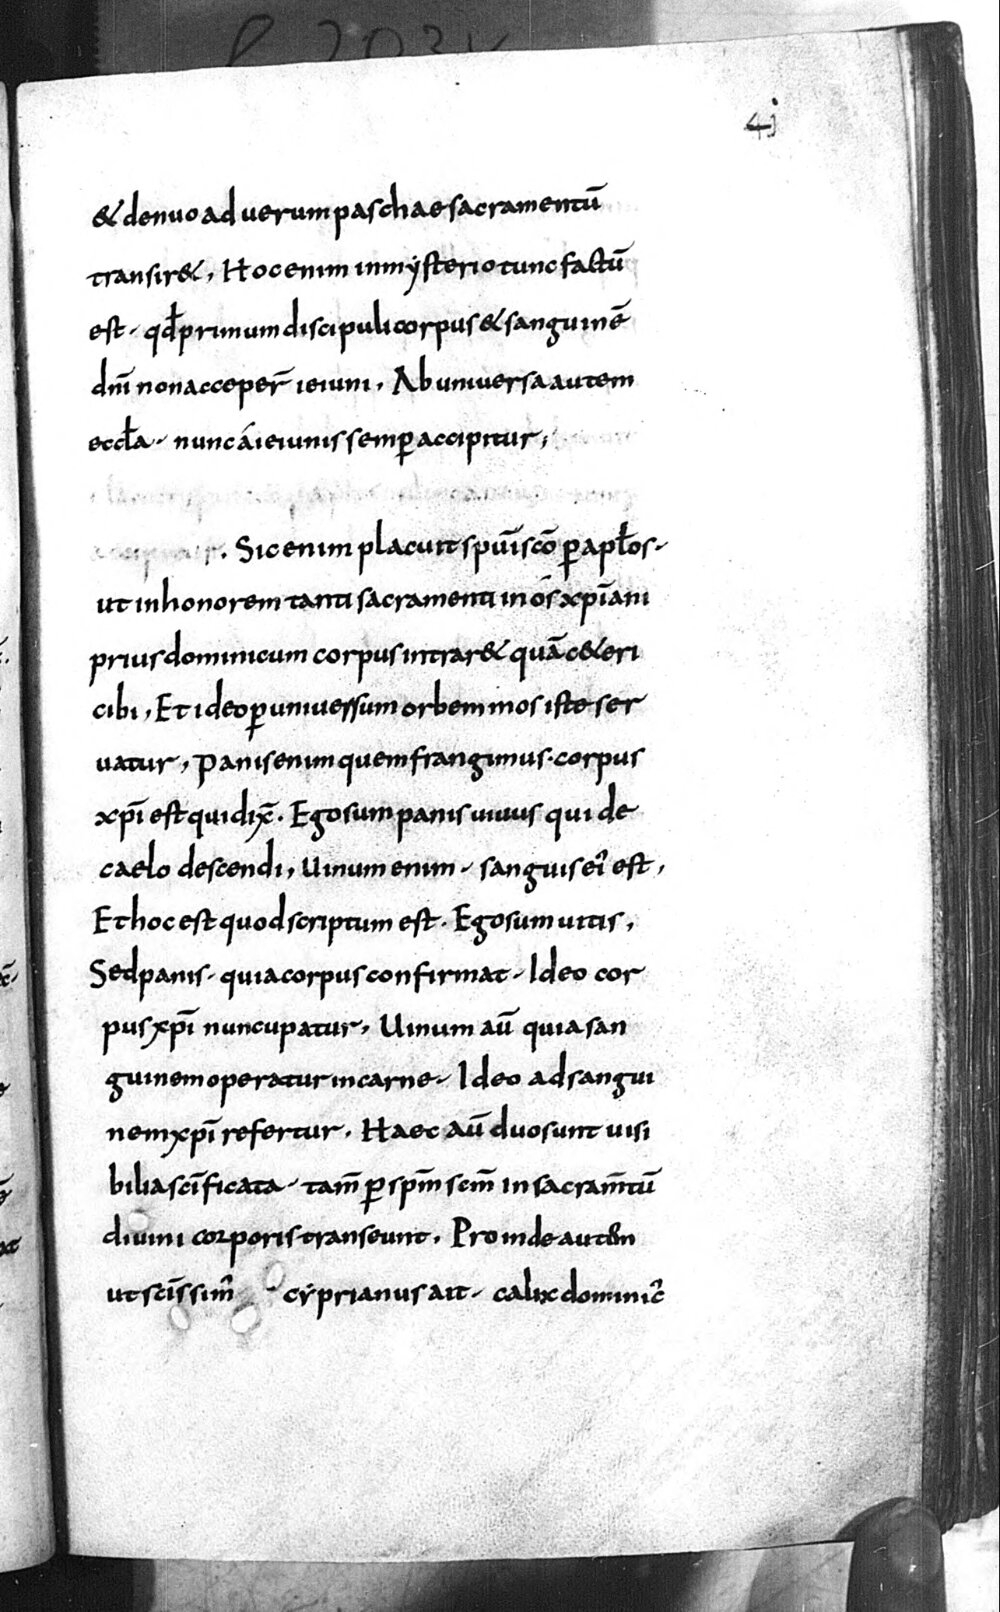 41
& denuo ad uerum paschae sacramentū
transir&, Hoc enim in mẏsterio tunc factū
est· qđ primum discipuli corpus & sanguinē
dnī non acceper̄ ieiuni, Ab uniuersa autem
eccłа· nunc á ieiunis semꝑ accipitur,
. Sic enim placuit spūi scō ꝑ apłos·
ut in honorem tanti sacramenti in ós xp̄iani
prius dominicum corpus intrar& quā c&eri
cibi, Et ideo ꝑ uniuerssum orbem mos iste ser
uatur, Panis enim quem frangimus· corpus
xp̄i est qui dix̄. Ego sum panis uiuus qui de
caelo descendi, Uinum enim· sanguis ei' est,
Et hoc est quod scriptum est. Ego sum uitis,
Sed panis· quia corpus confirmat· Ideo cor
pus xp̄i nuncupatur, Uinum aū quia san
guinem operatur in carne· Ideo ad sangui
nem xp̄i refertur. Haec aū duo sunt uisi
bilia scīficata· tam̄ ꝑ spm̄ scm̄ in sacram̄tū
diuini corporis transeunt. Proinde autem
ut scīssim' cẏprianus ait· calix dominic'